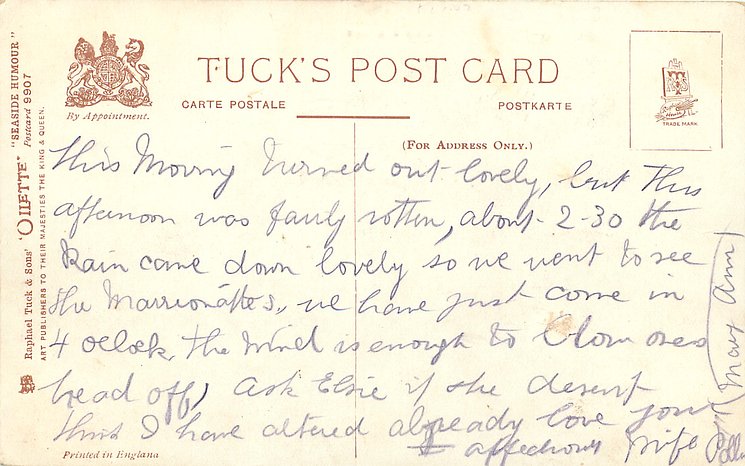 TUCK'S POST CARD
By Appointment.
CARTE POSTALE
POSTKARTE
(FOR ADDRESS ONLY.)
TRADE MARK
Raphael Tuck & Sons' "OILETTE" "SEASIDE HUMOUR"
Postcard 9907
ART PUBLISHERS TO THEIR MAJESTIES THE KING & QUEEN.
This Morning turned out lovely, but this
afternoon was fairly rotten, about 2-30 the
Rain came down lovely so we went to see
the Marrionattes, we have just come in
4 oclock, the Wind is enough to blow ones
head off, ask Elsie if she desent
think I have altered already love your
affectionate Wife
Mary Ann
Printed in England